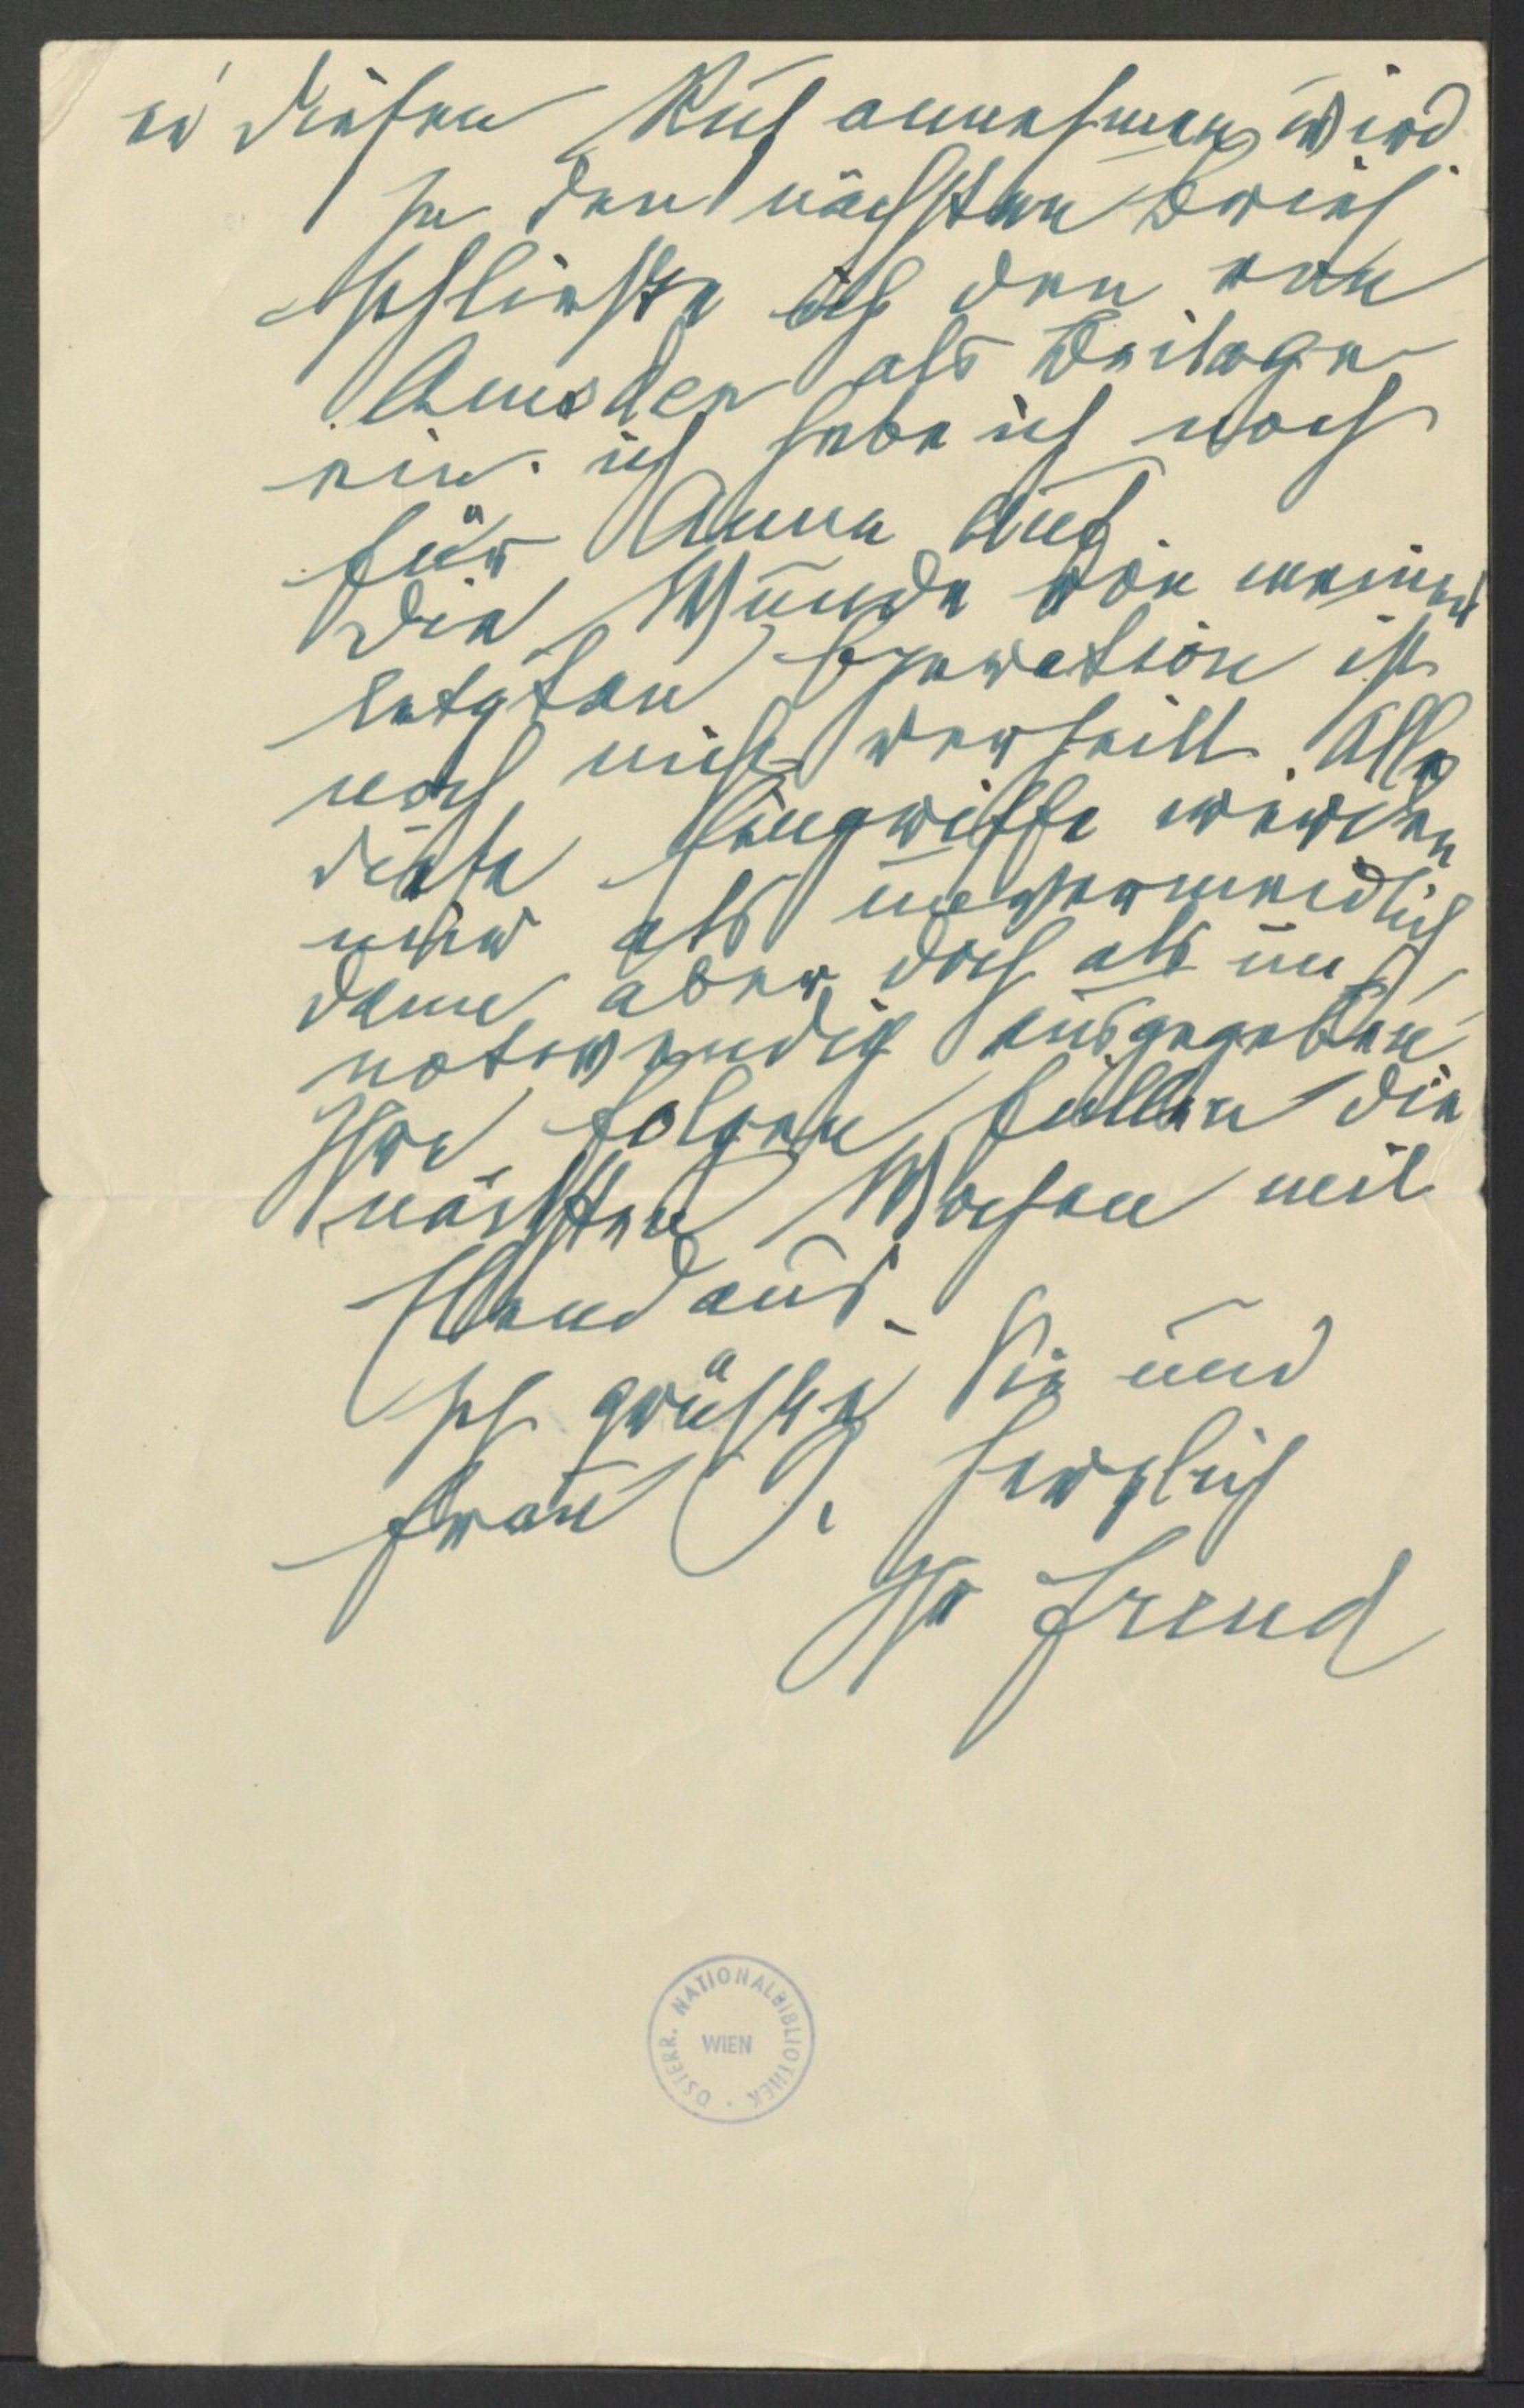 er diesen Ruf annehmen wird.
In den nächsten Brief
schließe ich den von
Amsden als Beilage
ein. ich hebe ich noch
für Anna auf
Die Wunde von meiner
letzten Operation ist
noch nicht verheilt. Alle
diese Eingriffe werden
mir als unvermeidlich
dann aber doch als un
notwendig ausgegeben
Ihre Folgen füllen die
nächsten Wochen mit
Elend aus.
Ich grüße Sie und
Frau P. herzlich
Ihr Freud
ÖSTERR. NATIONALBIBLIOTHEK
WIEN